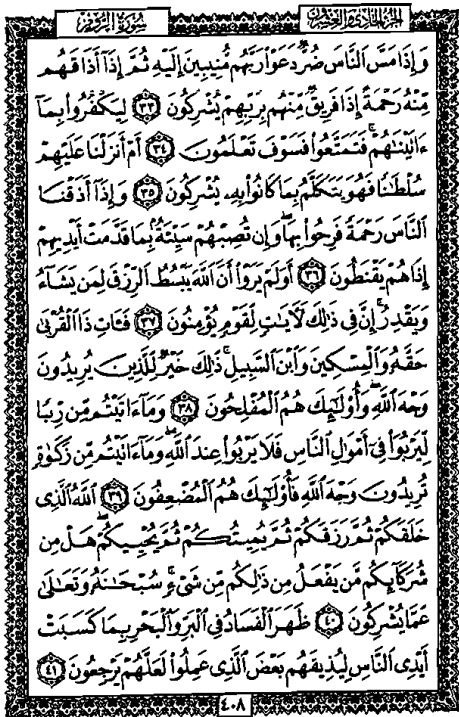 سُورَةُ الرُّومِ
الجزء الحادي والعشرون
وَإِذَا مَسَّ ٱلنَّاسَ ضُرٌّ دَعَوْا۟ رَبَّهُم مُّنِيبِينَ إِلَيْهِ ثُمَّ إِذَآ أَذَاقَهُم
مِّنْهُ رَحْمَةً إِذَا فَرِيقٌ مِّنْهُم بِرَبِّهِمْ يُشْرِكُونَ ﴿٣٣﴾ لِيَكْفُرُوا۟ بِمَآ
ءَاتَيْنَٰهُمْ ۚ فَتَمَتَّعُوا۟ فَسَوْفَ تَعْلَمُونَ ﴿٣٤﴾ أَمْ أَنزَلْنَا عَلَيْهِمْ
سُلْطَٰنًا فَهُوَ يَتَكَلَّمُ بِمَا كَانُوا۟ بِهِۦ يُشْرِكُونَ ﴿٣٥﴾ وَإِذَآ أَذَقْنَا
ٱلنَّاسَ رَحْمَةً فَرِحُوا۟ بِهَا ۖ وَإِن تُصِبْهُمْ سَيِّئَةٌۢ بِمَا قَدَّمَتْ أَيْدِيهِمْ
إِذَا هُمْ يَقْنَطُونَ ﴿٣٦﴾ أَوَلَمْ يَرَوْا۟ أَنَّ ٱللَّهَ يَبْسُطُ ٱلرِّزْقَ لِمَن يَشَآءُ
وَيَقْدِرُ ۚ إِنَّ فِى ذَٰلِكَ لَءَايَٰتٍ لِّقَوْمٍ يُؤْمِنُونَ ﴿٣٧﴾ فَـَٔاتِ ذَا ٱلْقُرْبَىٰ
حَقَّهُۥ وَٱلْمِسْكِينَ وَٱبْنَ ٱلسَّبِيلِ ۚ ذَٰلِكَ خَيْرٌ لِّلَّذِينَ يُرِيدُونَ
وَجْهَ ٱللَّهِ ۖ وَأُو۟لَٰٓئِكَ هُمُ ٱلْمُفْلِحُونَ ﴿٣٨﴾ وَمَآ ءَاتَيْتُم مِّن رِّبًا
لِّيَرْبُوَا۟ فِىٓ أَمْوَٰلِ ٱلنَّاسِ فَلَا يَرْبُوا۟ عِندَ ٱللَّهِ ۖ وَمَآ ءَاتَيْتُم مِّن زَكَوٰةٍ
تُرِيدُونَ وَجْهَ ٱللَّهِ فَأُو۟لَٰٓئِكَ هُمُ ٱلْمُضْعِفُونَ ﴿٣٩﴾ ٱللَّهُ ٱلَّذِى
خَلَقَكُمْ ثُمَّ رَزَقَكُمْ ثُمَّ يُمِيتُكُمْ ثُمَّ يُحْيِيكُمْ ۖ هَلْ مِن
شُرَكَآئِكُم مَّن يَفْعَلُ مِن ذَٰلِكُم مِّن شَىْءٍ ۚ سُبْحَٰنَهُۥ وَتَعَٰلَىٰ
عَمَّا يُشْرِكُونَ ﴿٤٠﴾ ظَهَرَ ٱلْفَسَادُ فِى ٱلْبَرِّ وَٱلْبَحْرِ بِمَا كَسَبَتْ
أَيْدِى ٱلنَّاسِ لِيُذِيقَهُم بَعْضَ ٱلَّذِى عَمِلُوا۟ لَعَلَّهُمْ يَرْجِعُونَ ﴿٤١﴾
٤٠٨